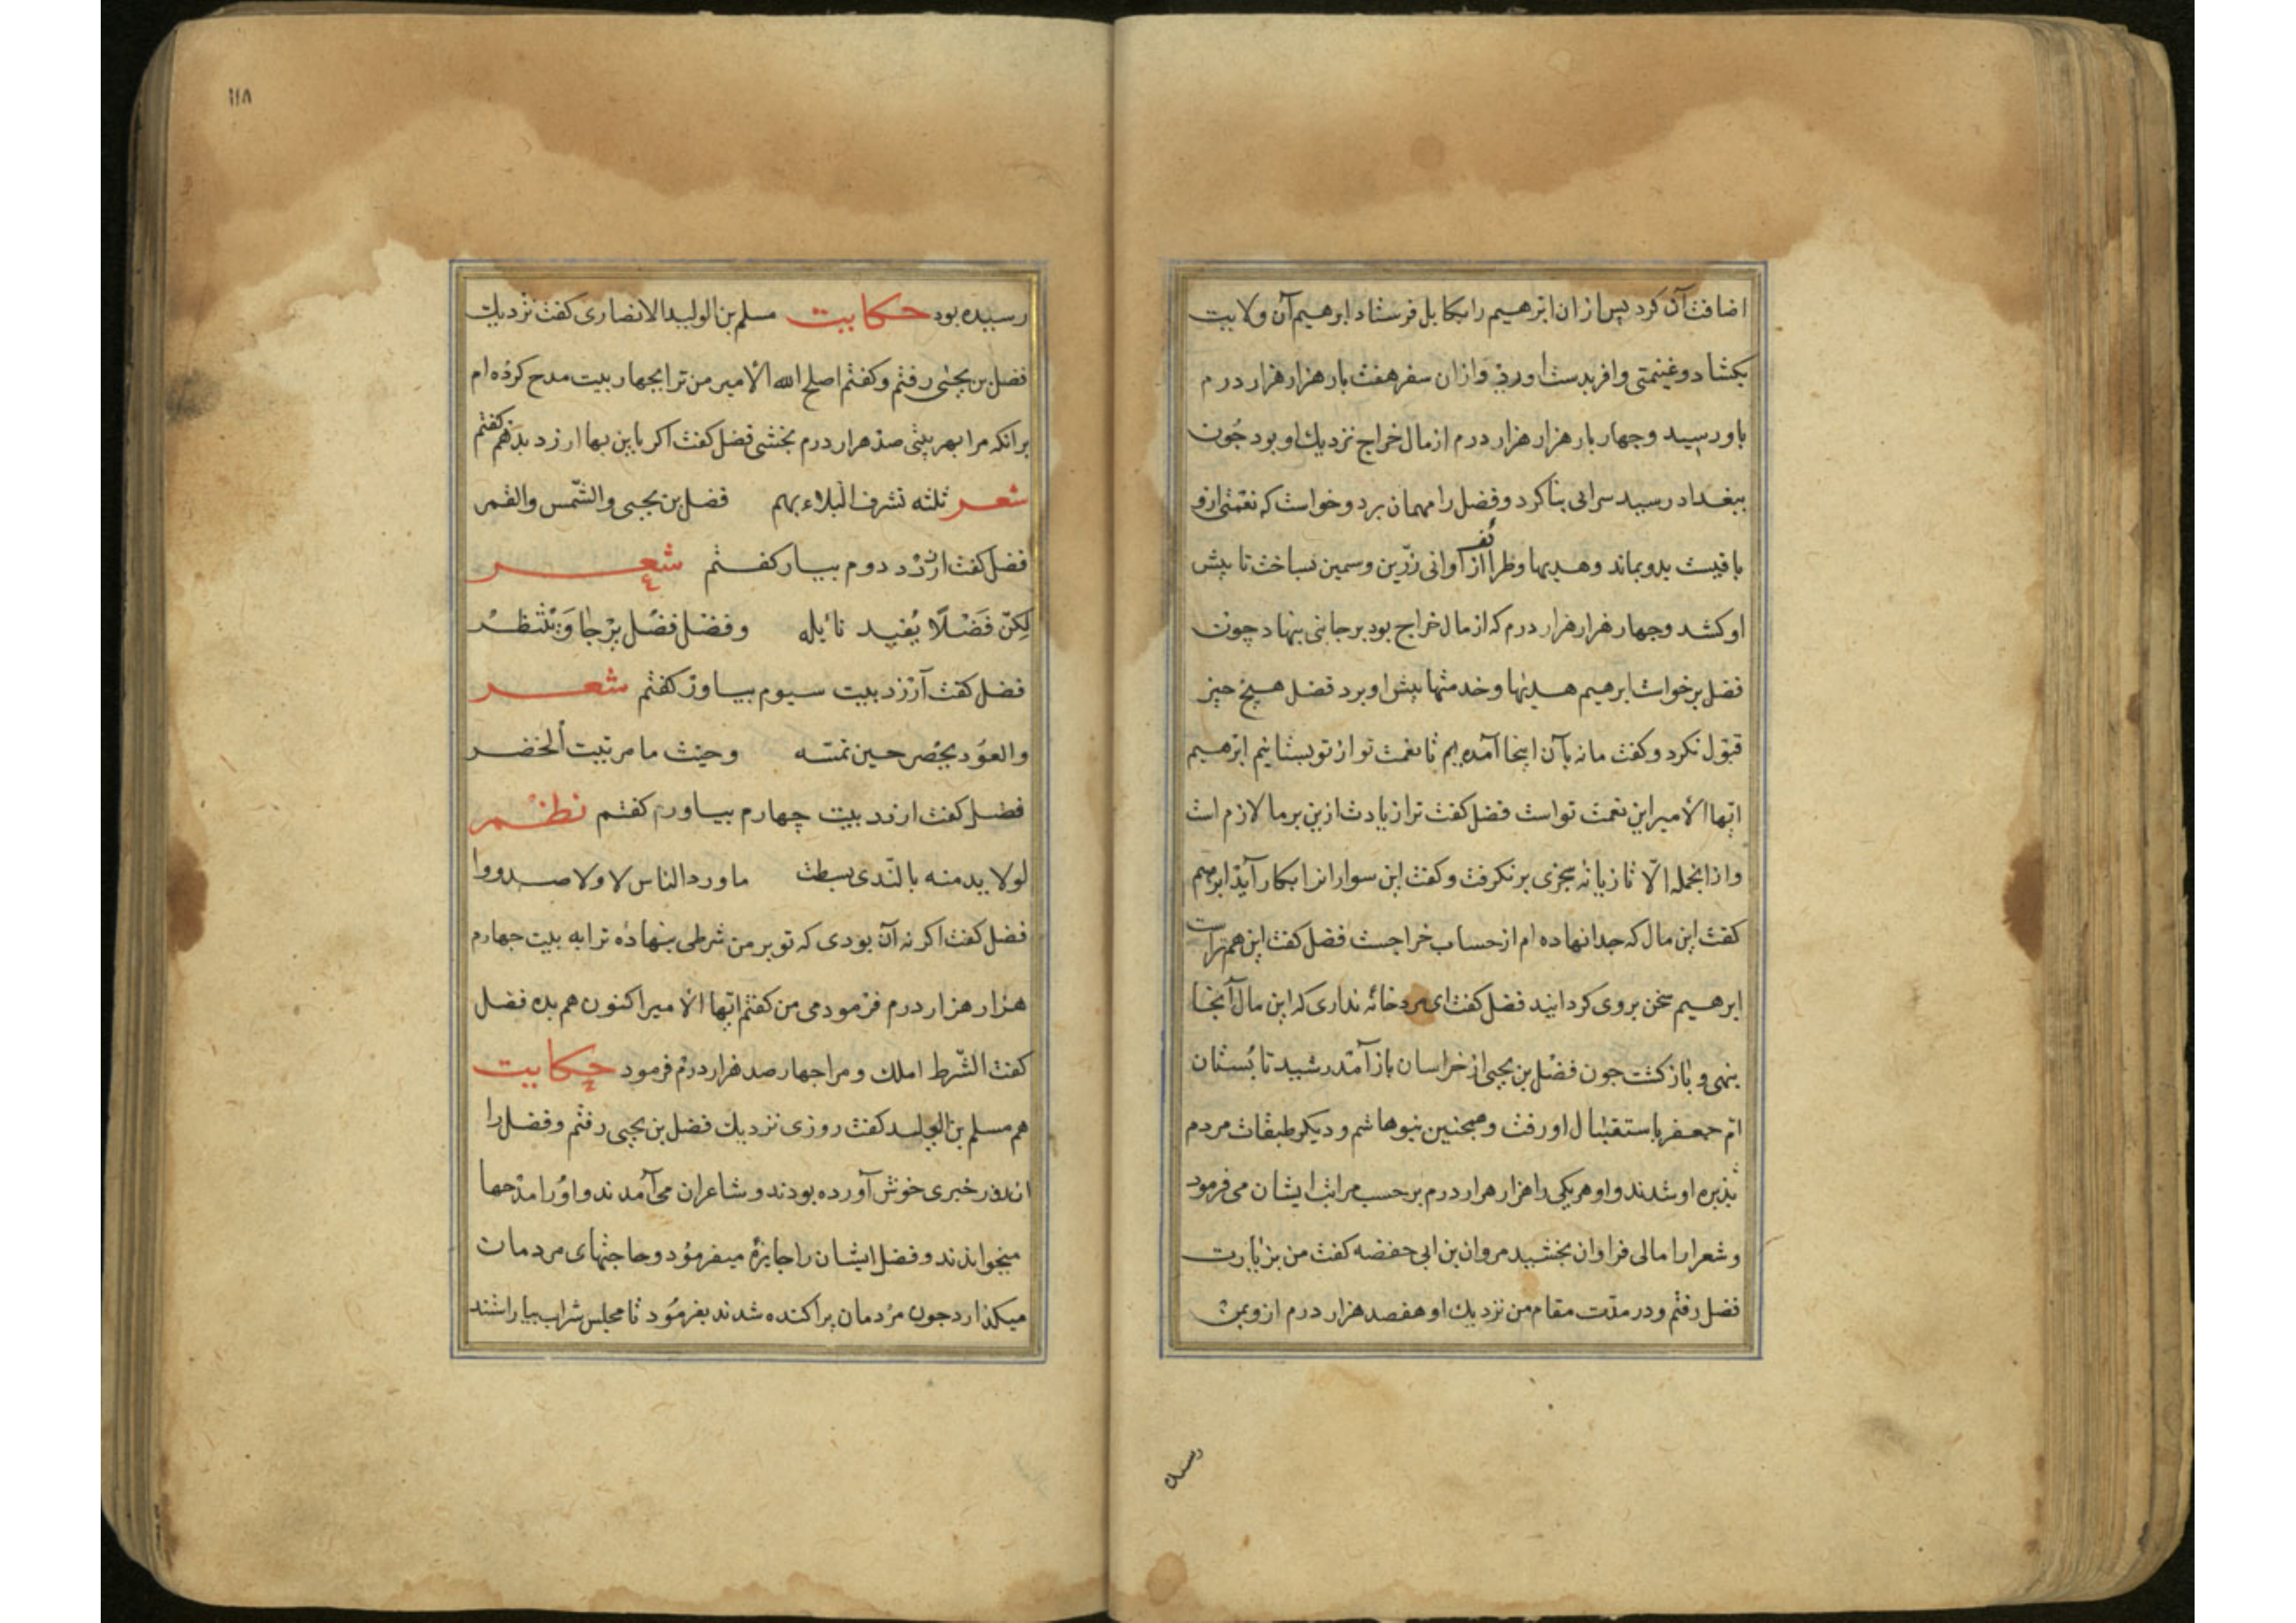 اضافت آن کرد پس از ان ابرهیم را بکابل فرستاد ابرهیم آن ولایت
بکشاد و غنیمتی وافر بدست اورد و از ان سفر هفت بار هزار هزار درم
باو رسید و چهار بار هزار هزار درم از مال خراج نزدیك او بود چون
ببغداد رسید سرایی بنا کرد و فضل را مهمان برد و خواست که نعمتی ازو
یافتست بدو نماند و هدیها و ظرائف از اوانی زرّین و سمین بساخت تا پیش
او کشد و چهار هزار هزار درم که از مال خراج بود بر جانبی بنهاد چون
فضل برخواست ابرهیم هدیها و خدمتها پیش او برد فضل هیچ چیز
قبول نکرد و کفت ما نه بآن اینجا آمده ایم تا نعمت تو از تو بستانیم ابرهیم
ایّها الامیر این نعمت تو است فضل کفت ترا زیادت ازین بر ما لازم است
و از انجمله الّا تازیانه سجزی بر نکرفت و کفت این سوارانرا بکار آید ابرهیم
کفت این مال که جدا نهاده ام از حساب خراجست فضل کفت این هم تراست
ابرهیم سخن بر وی کردانید فضل کفت ای مرد خانه نداری که این مال آنجا
بنهی و باز کشت چون فضل بن یحیی از خراسان باز آمد رشید تا بستان
امّ جعفر باستقبال او رفت و همچنین بنو هاشم و دیکر طبقات مردم
پذیره او شدند و او هر یکی را هزار هزار درم بر حسب مراتب ایشان می فرمود
و شعرا را مالی فراوان بخشید مروان بن ابی حفصه کفت من بزیارت
فضل رفتم و در مدّت مقام من نزدیك او هفصد هزار درم ازو بمن
رسیده
۱۱۸
رسیده بود حکایت مسلم بن الولید الانصاری کفت نزدیك
فضل بن یحیی رفتم و کفتم اصلح الله الامیر من ترا بچهار بیت مدح کرده ام
برانکه مرا بهر بیتی صد هزار درم بخشی فضل کفت اکر باین بها ارزد بدهم کفتم
شعر ثلثه تشرف البلاء بهم فضل بن یحیی والشّمس والقمر
فضل کفت ارزد دوم بیار کفتم شعر
لکنّ فَضْلًا یُفید نائله وفضل فضل یرجا وینتظر
فضل کفت ارزد بیت سیوم بیاور کفتم شعر
والعود یخضر حین تمسه وحیث ما مر تیبت الخضر
فضل کفت ارزد بیت چهارم بیاور کفتم نظم
لولا ید منه بالنّدی بسطت ما ورد الناس لا ولا صدروا
فضل کفت اکر نه آن بودی که تو بر من شرطی بنهاده ترا به بیت چهارم
هزار هزار درم فرمودمی من کفتم ایّها الامیر اکنون هم بده فضل
کفت الشّرط املك و مرا چهار صد هزار درم فرمود حکایت
هم مسلم بن الولید کفت روزی نزدیك فضل بن یحیی رفتم و فضل را
اندر خبری خوش آورده بودند و شاعران می آمدند و او را مدحها
میخواندند و فضل ایشان را جایزه میفرمود و حاجتهای مردمان
میکذارد چون مردمان پراکنده شدند بفرمود تا مجلس شراب بیاراستند